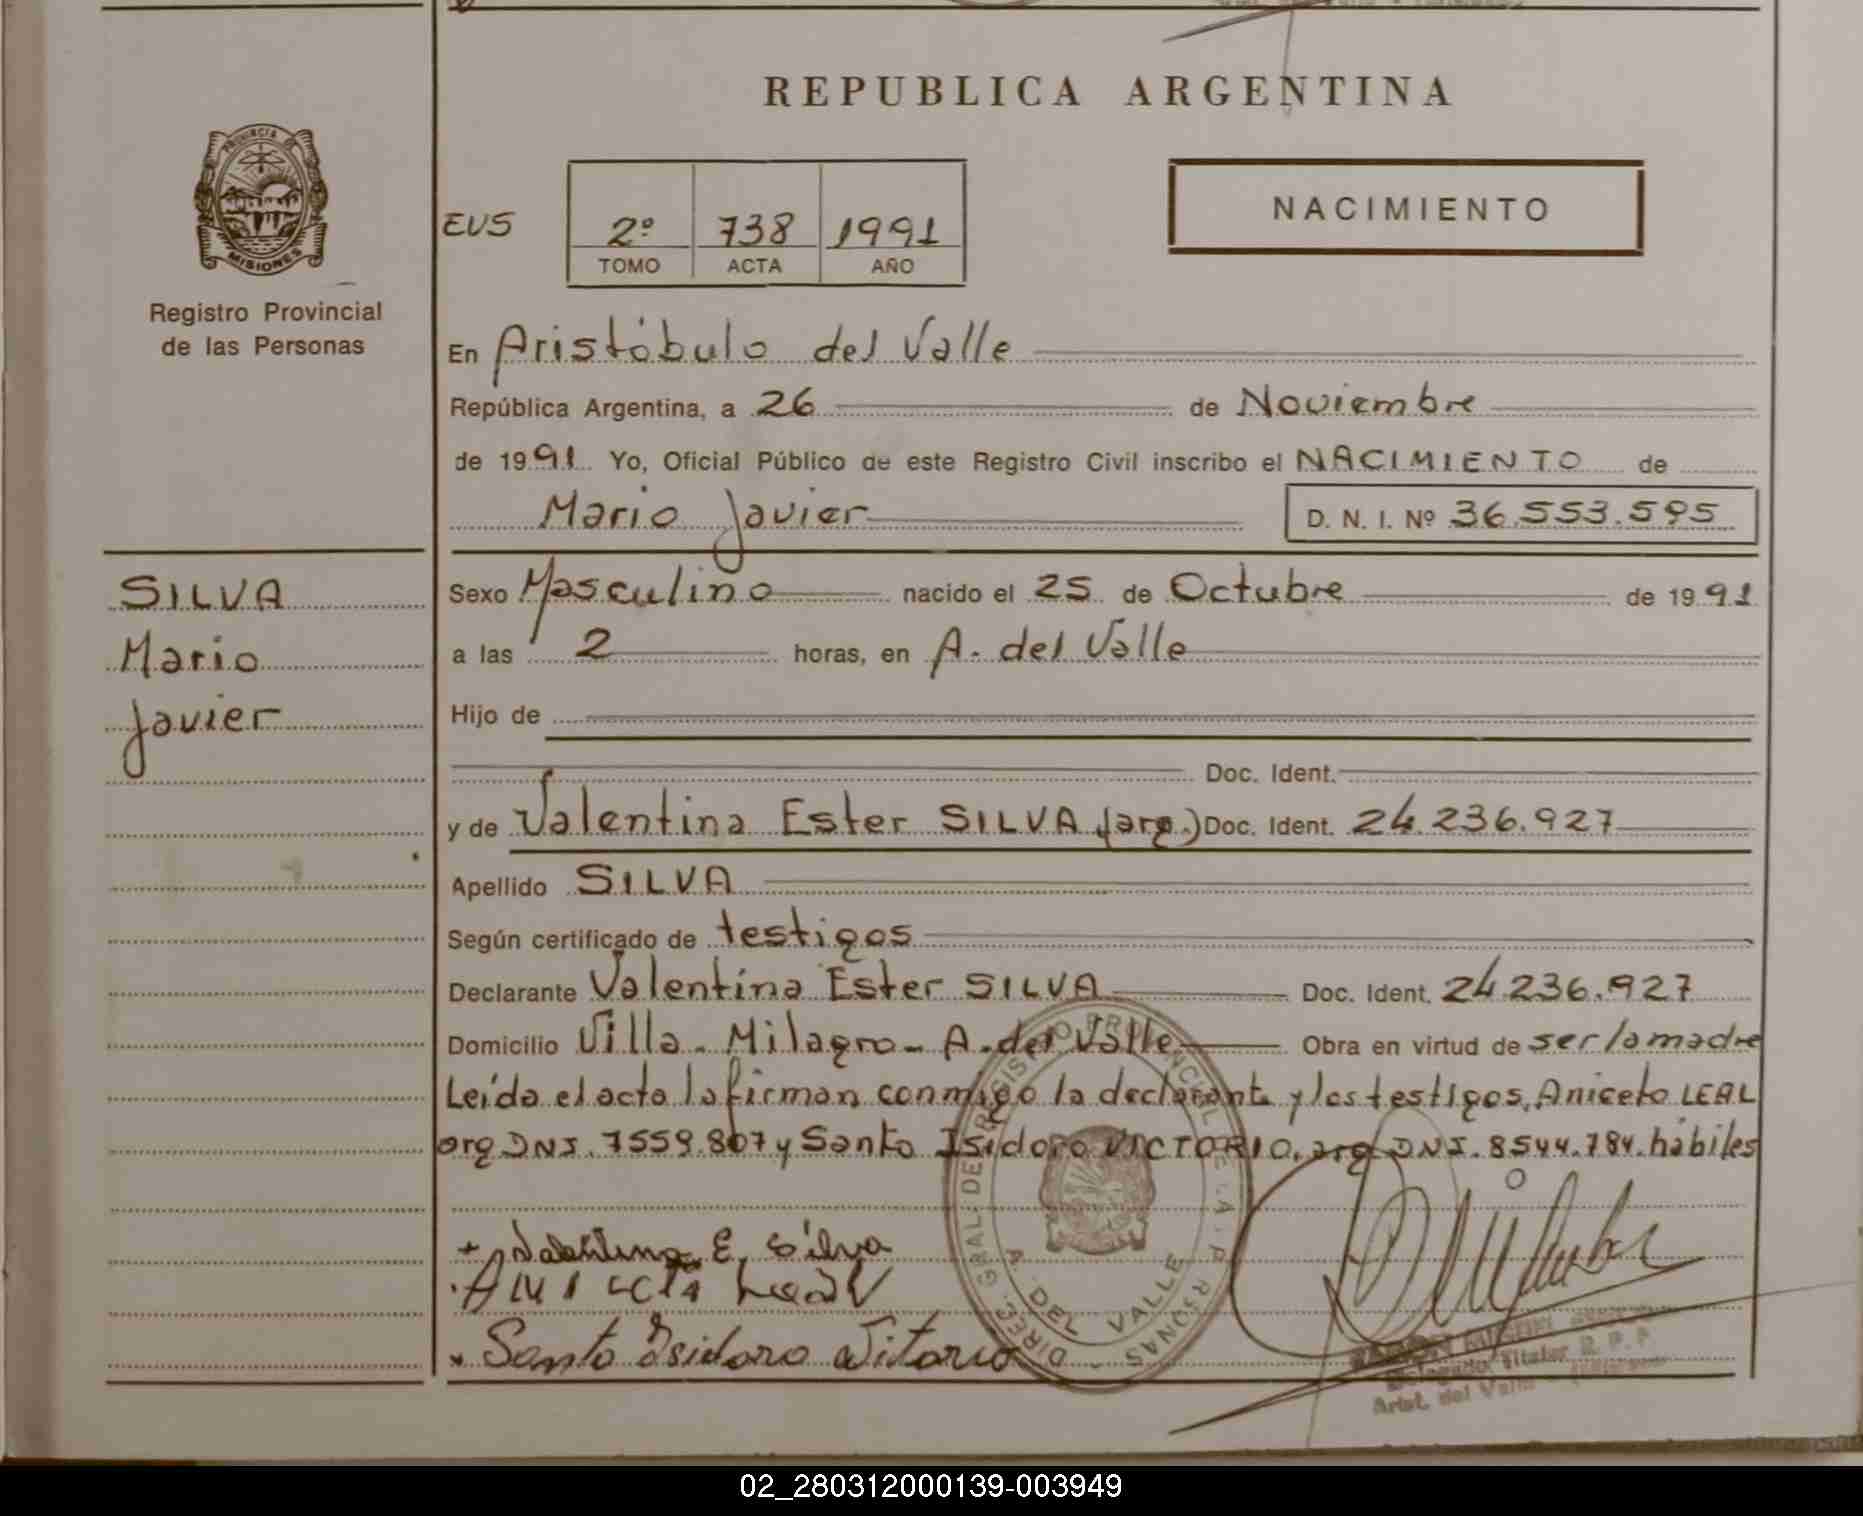 REPUBLICA ARGENTINA
PROVINCIA
MISIONES
Registro Provincial
de las Personas
EUS
2º 738 1991
TOMO ACTA AÑO
NACIMIENTO
En Aristóbulo del Valle
República Argentina, a 26 de Noviembre
de 1991 Yo, Oficial Público de este Registro Civil inscribo el NACIMIENTO de
Mario Javier D. N. I. Nº 36.553.595
SILVA
Mario
Javier
Sexo Masculino nacido el 25 de Octubre de 1991
a las 2 horas, en A. del Valle
Hijo de
Doc. Ident.
y de Valentina Ester SILVA (arg.) Doc. Ident. 24.236.927
Apellido SILVA
Según certificado de testigos
Declarante Valentina Ester SILVA Doc. Ident. 24.236.927
Domicilio Villa - Milagro - A. del Valle Obra en virtud de ser la madre
Leída el acta la firman conmigo la declarante y los testigos, Aniceto LEAL
arg DNI. 7559.807 y Santo Isidoro VICTORIO, arg DNI. 8544.784. hábiles
DIREC. GRAL. DEL REGISTRO PROVINCIAL DE LA P.
A. DEL VALLE
E. Silva
Santo Isidoro Vitorio
Titular R. P. P.
Arist. del Valle
02_280312000139-003949